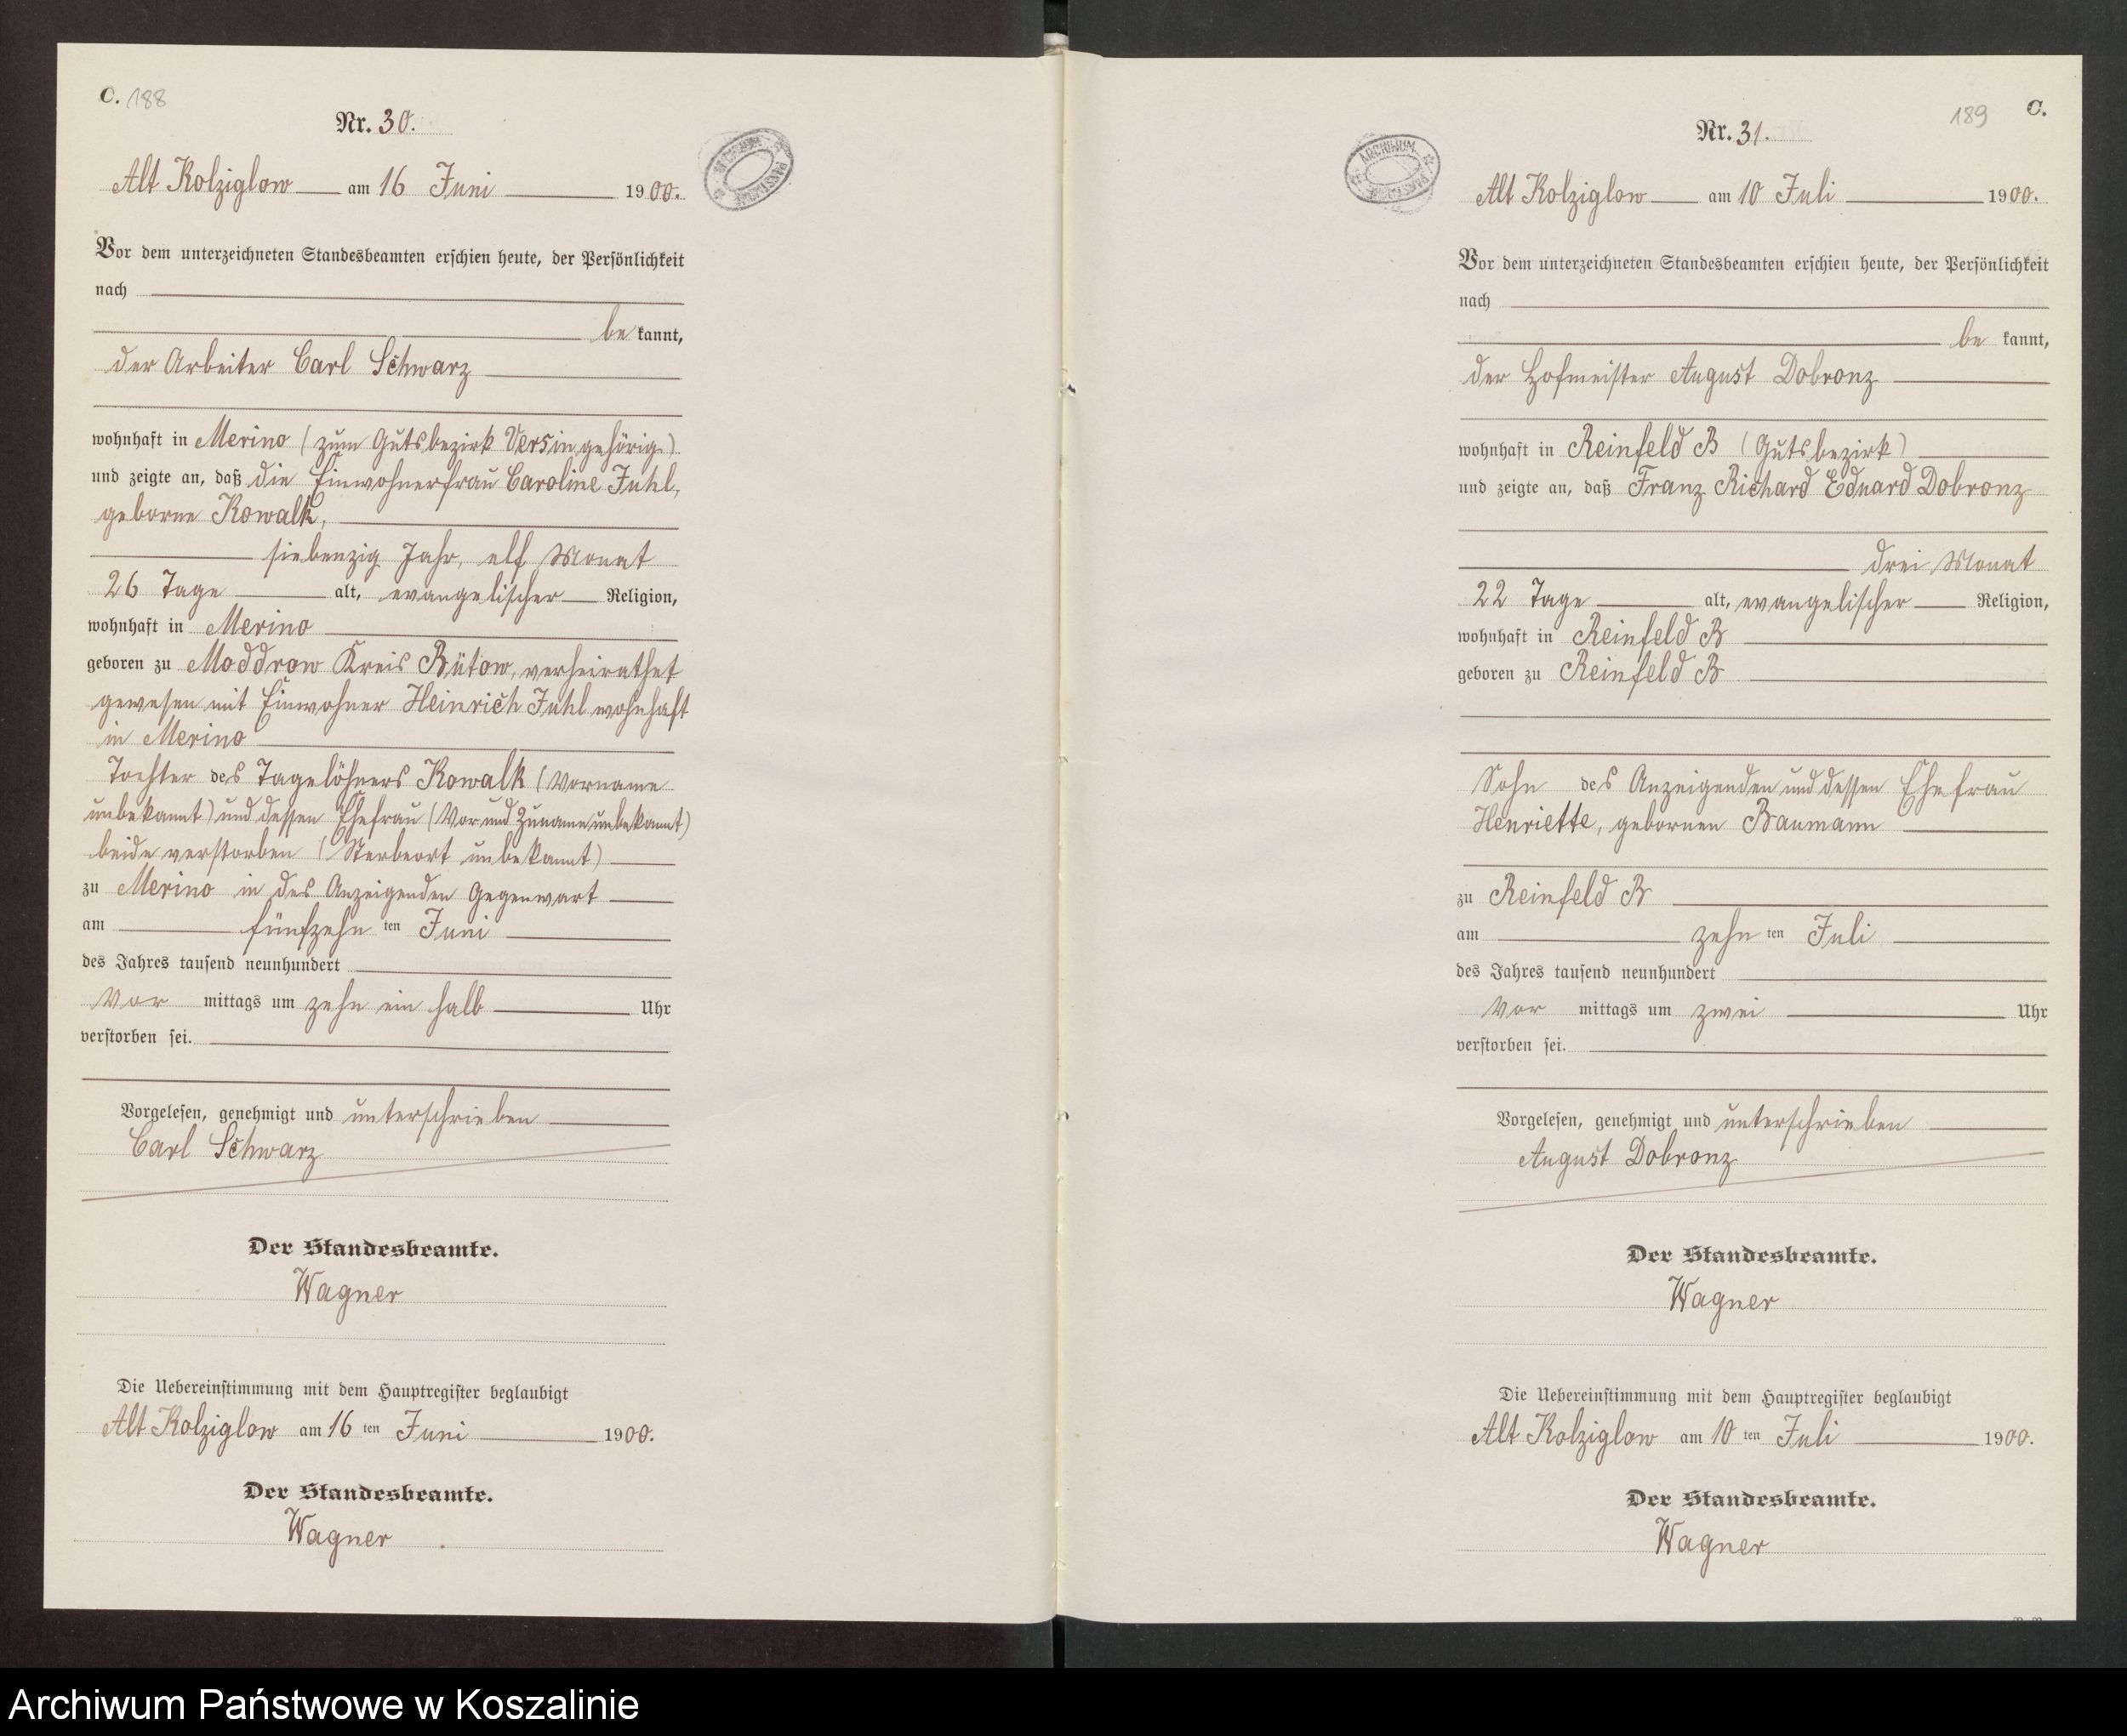 C. 188
Nr. 30.
Alt Kolziglow am 16 Juni 1900.
Vor dem unterzeichneten Standesbeamten erschien heute, der Persönlichkeit
nach
bekannt,
der Arbeiter Carl Schwarz
wohnhaft in Merino (zum Gutsbezirk Versin gehörig)
und zeigte an, daß die Einwohnerfrau Caroline Juhl,
geborne Kowalk,
siebenzig Jahr, elf Monat
26 Tage alt, evangelischer Religion,
wohnhaft in Merino
geboren zu Moddrow Kreis Bütow, verheirathet
gewesen mit Einwohner Heinrich Juhl wohnhaft
in Merino
Tochter des Tagelöhners Kowalk (Vorname
unbekannt) und dessen Ehefrau (Vor und Zuname unbekannt)
beide verstorben (Sterbeort unbekannt)
zu Merino in des Anzeigenden Gegenwart
am fünfzehn ten Juni
des Jahres tausend neunhundert
Vor mittags um zehn ein halb Uhr
verstorben sei.
Vorgelesen, genehmigt und unterschrieben
Carl Schwarz
Der Standesbeamte.
Wagner
Die Uebereinstimmung mit dem Hauptregister beglaubigt
Alt Kolziglow am 16 ten Juni 1900.
Der Standesbeamte.
Wagner
189 C.
Nr. 31.
ARCHIWUM
Alt Kolziglow am 10 Juli 1900.
Vor dem unterzeichneten Standesbeamten erschien heute, der Persönlichkeit
nach
be kannt,
der Hofmeister August Dobronz
wohnhaft in Reinfeld B (Gutsbezirk)
und zeigte an, daß Franz Richard Eduard Dobronz
drei Monat
22 Tage alt, evangelischer Religion,
wohnhaft in Reinfeld B
geboren zu Reinfeld B
Sohn des Anzeigenden und dessen Ehefrau
Henriette, gebornen Baumann
zu Reinfeld B
am zehn ten Juli
des Jahres tausend neunhundert
Vor mittags um zwei Uhr
verstorben sei.
Vorgelesen, genehmigt und unterschrieben
August Dobronz
Der Standesbeamte.
Wagner
Die Uebereinstimmung mit dem Hauptregister beglaubigt
Alt Kolziglow am 10 ten Juli 1900.
Der Standesbeamte.
Wagner
Archiwum Państwowe w Koszalinie